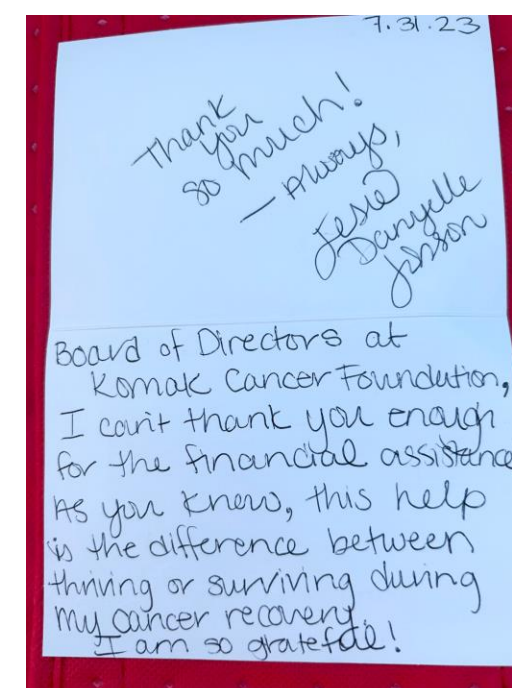 7.31.23
Thank
you
so much!
— Always,
Jesie
Danyelle
Johnson
Board of Directors at
Komak Cancer Foundation,
I can't thank you enough
for the financial assistance
As you knew, this help
is the difference between
thriving or surviving during
my cancer recovery.
I am so grateful!